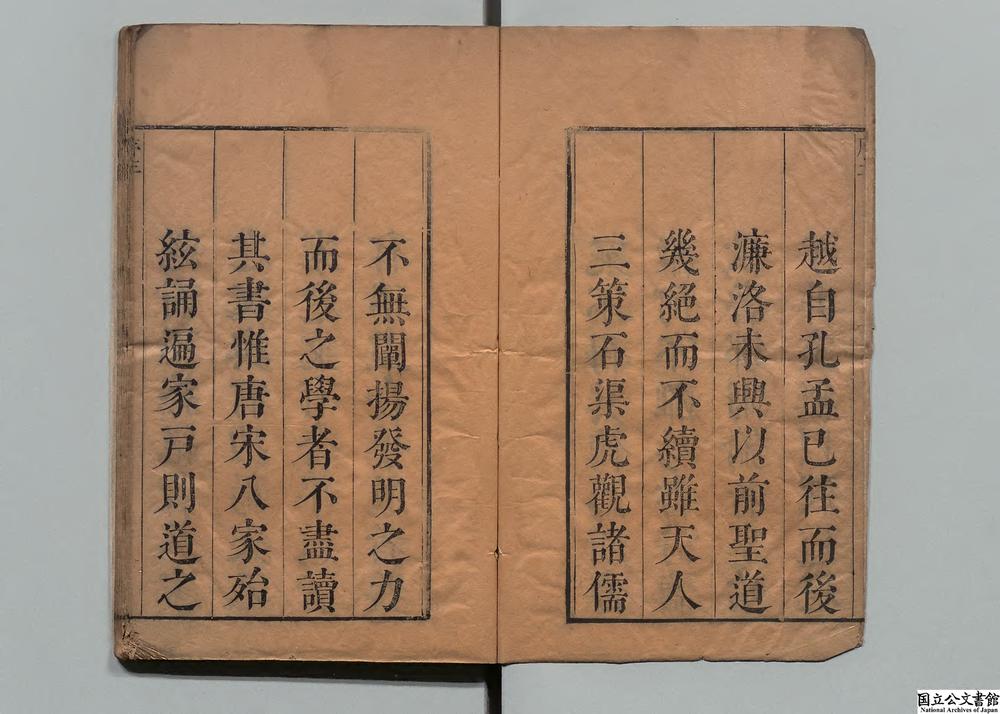 越自孔孟已往而後
濂洛未興以前聖道
幾絕而不續雖天人
三策石渠虎觀諸儒
不無闡揚發明之力
而後之學者不盡讀
其書惟唐宋八家殆
絃誦遍家戸則道之
国立公文書館
National Archives of Japan